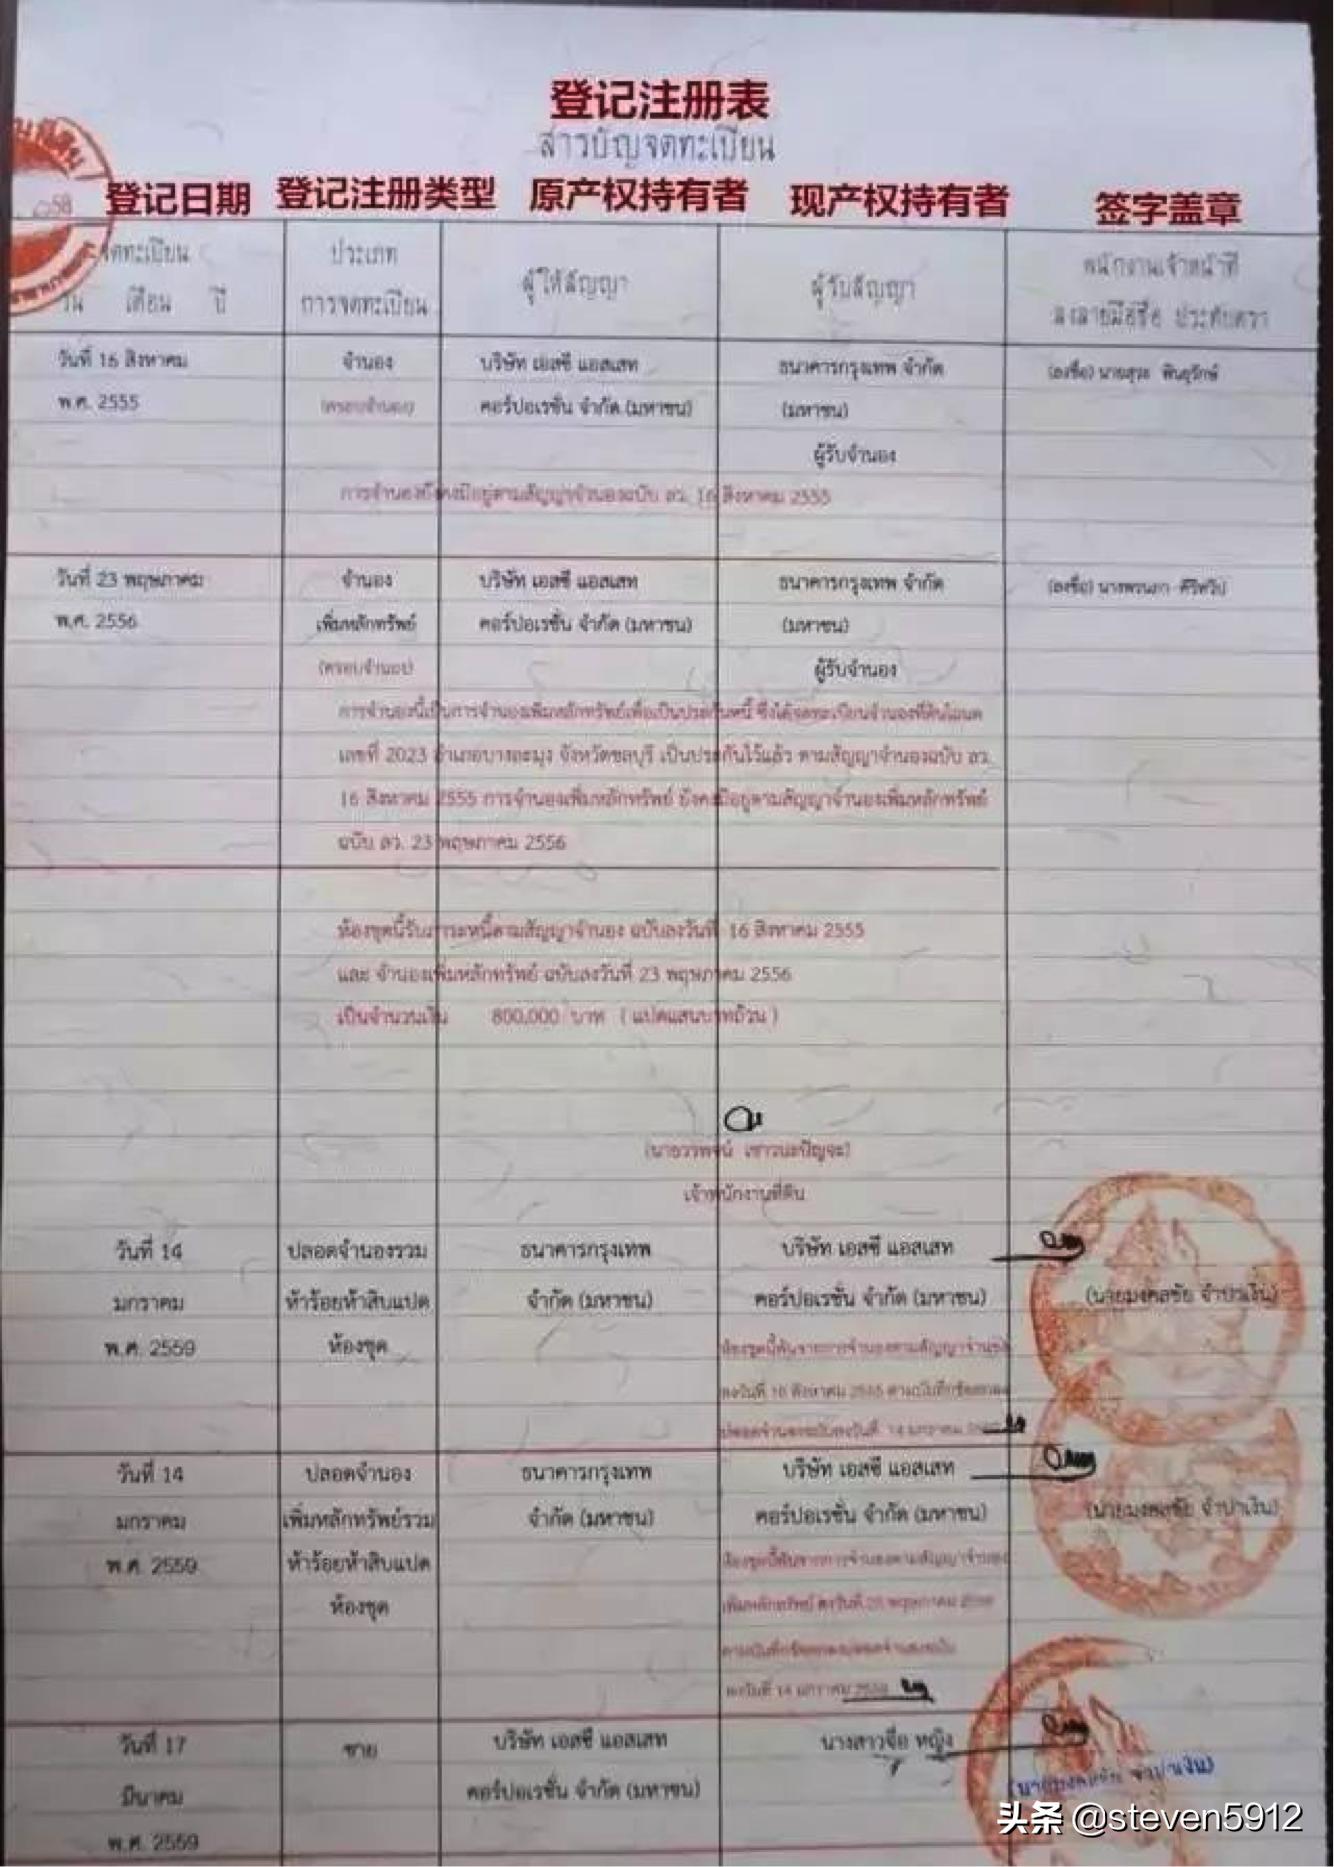 登记注册表
สารบัญจดทะเบียน
登记日期 登记注册类型 原产权持有者 现产权持有者 签字盖章
จดทะเบียน
วัน เดือน ปี
ประเภท
การจดทะเบียน
ผู้ให้สัญญา
ผู้รับสัญญา
พนักงานเจ้าหน้าที่
ลงลายมือชื่อ ประทับตรา
วันที่ 16 สิงหาคม
พ.ศ. 2555
จำนอง
(ครอบจำนอง)
บริษัท เอสซี แอสเสท
คอร์ปอเรชั่น จำกัด (มหาชน)
ธนาคารกรุงเทพ จำกัด
(มหาชน)
ผู้รับจำนอง
(ลงชื่อ) นายสุระ
การจำนองยังคงมีอยู่ตามสัญญาจำนองฉบับ ลว. 16 สิงหาคม 2555
วันที่ 23 พฤษภาคม
พ.ศ. 2556
จำนอง
เพิ่มหลักทรัพย์
(ครอบจำนอง)
บริษัท เอสซี แอสเสท
คอร์ปอเรชั่น จำกัด (มหาชน)
ธนาคารกรุงเทพ จำกัด
(มหาชน)
ผู้รับจำนอง
(ลงชื่อ)
การจำนองนี้เป็นการจำนองเพิ่มหลักทรัพย์เพื่อเป็นประกันหนี้ ซึ่งได้จดทะเบียนจำนองที่ดินโฉนด
เลขที่ 2023 อำเภอบางละมุง จังหวัดชลบุรี เป็นประกันไว้แล้ว ตามสัญญาจำนองฉบับ ลว.
16 สิงหาคม 2555 การจำนองเพิ่มหลักทรัพย์ ยังคงมีอยู่ตามสัญญาจำนองเพิ่มหลักทรัพย์
ฉบับ ลว. 23 พฤษภาคม 2556
ห้องชุดนี้รับภาระหนี้ตามสัญญาจำนอง ฉบับลงวันที่ 16 สิงหาคม 2555
และ จำนองเพิ่มหลักทรัพย์ ฉบับลงวันที่ 23 พฤษภาคม 2556
เป็นจำนวนเงิน 800,000 บาท (แปดแสนบาทถ้วน)
เจ้าพนักงานที่ดิน
วันที่ 14
มกราคม
พ.ศ. 2559
ปลอดจำนองรวม
ห้าร้อยห้าสิบแปด
ห้องชุด
ธนาคารกรุงเทพ
จำกัด (มหาชน)
บริษัท เอสซี แอสเสท
คอร์ปอเรชั่น จำกัด (มหาชน)
ห้องชุดนี้พ้นจากการจำนองตามสัญญาจำนอง
ลงวันที่ 16 สิงหาคม 2555
ปลอดจำนองฉบับลงวันที่ 14 มกราคม
(นายมงคลชัย จำปาเงิน)
วันที่ 14
มกราคม
พ.ศ. 2559
ปลอดจำนอง
เพิ่มหลักทรัพย์รวม
ห้าร้อยห้าสิบแปด
ห้องชุด
ธนาคารกรุงเทพ
จำกัด (มหาชน)
บริษัท เอสซี แอสเสท
คอร์ปอเรชั่น จำกัด (มหาชน)
ห้องชุดนี้พ้นจากการจำนองตามสัญญาจำนอง
เพิ่มหลักทรัพย์ ลงวันที่ 23 พฤษภาคม 2556
ลงวันที่ 14 มกราคม 2559
(นายมงคลชัย จำปาเงิน)
วันที่ 17
มีนาคม
พ.ศ. 2559
ขาย
บริษัท เอสซี แอสเสท
คอร์ปอเรชั่น จำกัด (มหาชน)
นางสาวจื่อ หญิง
(นายมงคลชัย จำปาเงิน)
头条 @steven5912